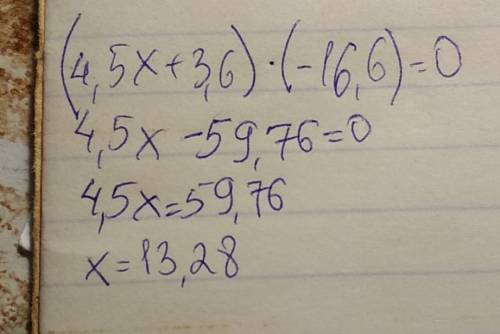 (4,5x+3,6)·(-16,6)=0
4,5x-59,76=0
4,5x=59,76
x=13,28